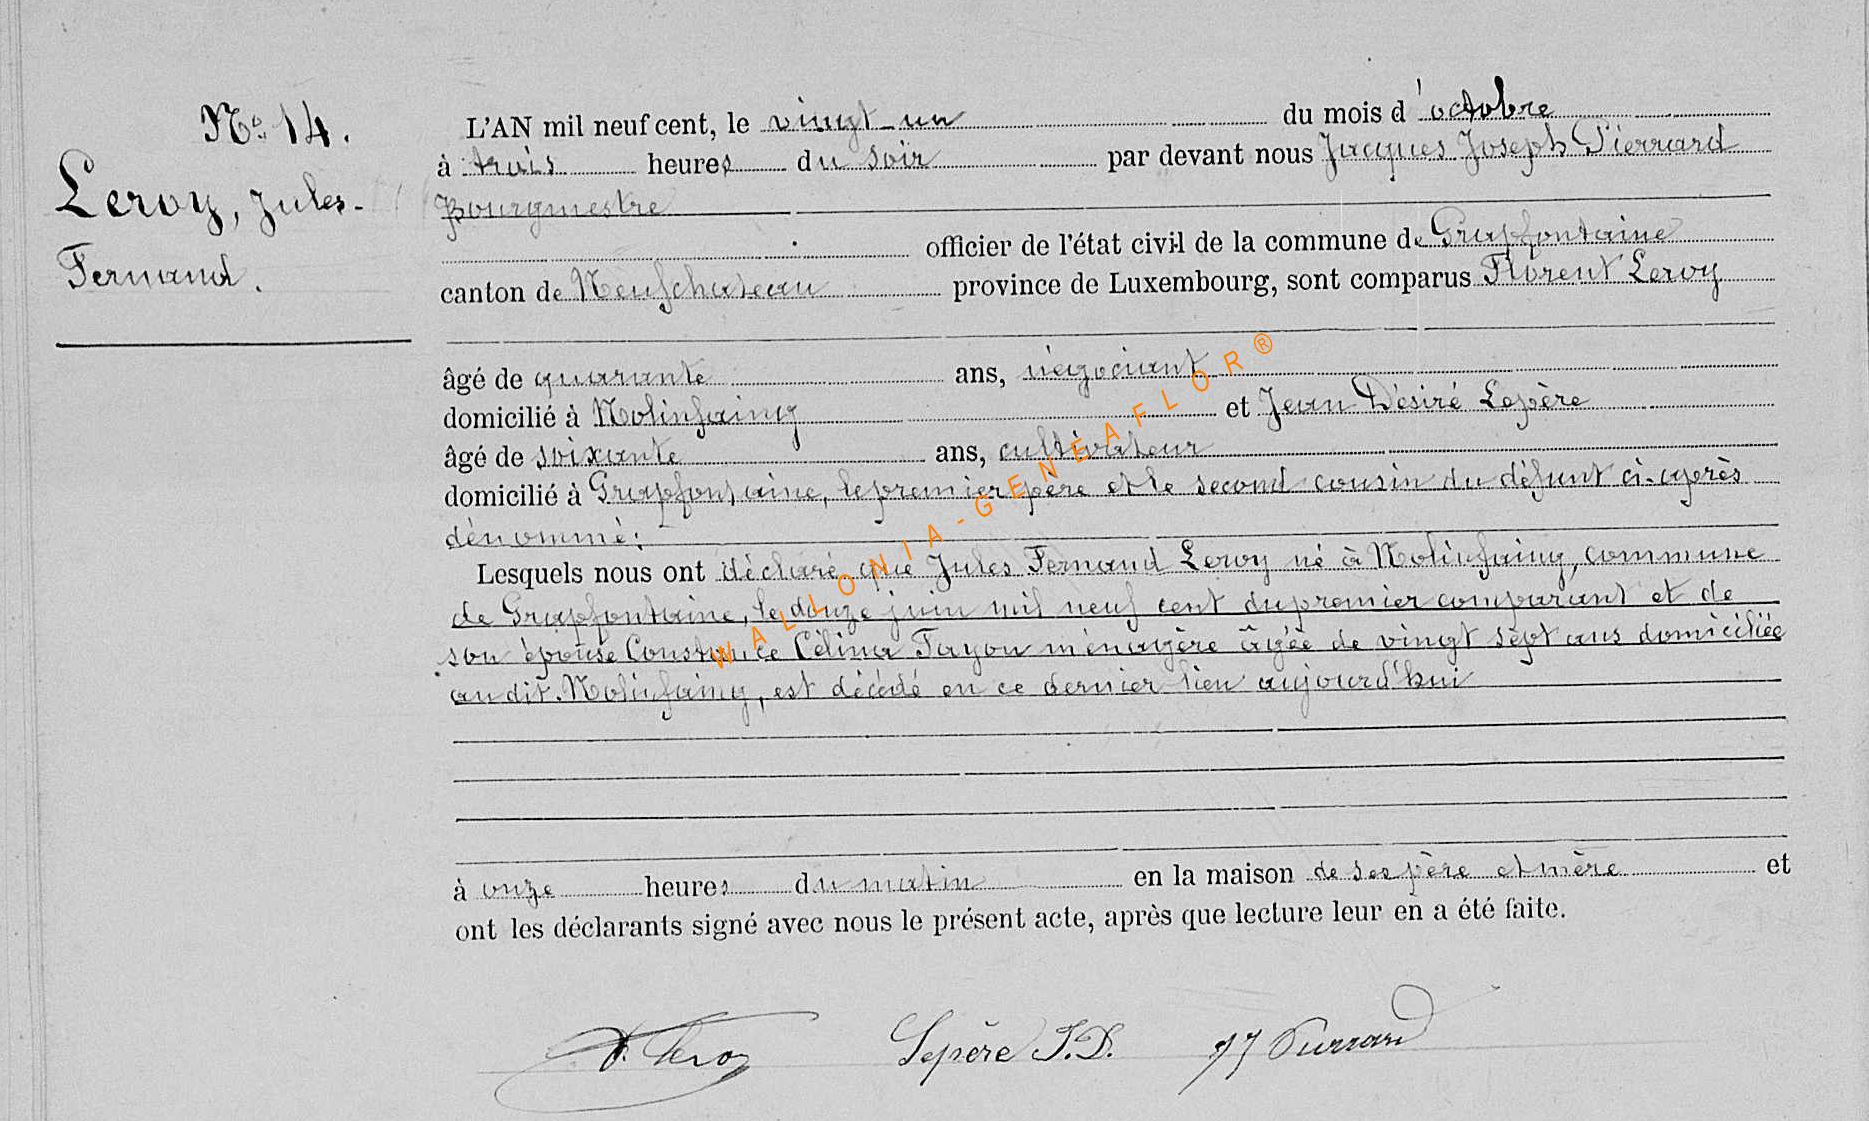 N° 14.
Leroy, Jules-
Fernand.
L'AN mil neuf cent, le vingt-un du mois d'octobre
à trois heures du soir par devant nous Jacques Joseph Pierrard
Bourgmestre
officier de l'état civil de la commune de Grapfontaine
canton de Neufchateau province de Luxembourg, sont comparus Florent Leroy
âgé de quarante ans, négociant
domicilié à Nolinfaing et Jean Désiré Lepère
âgé de soixante ans, cultivateur
domicilié à Grapfontaine, le premier père et le second cousin du défunt ci-après
dénommé:
Lesquels nous ont déclaré que Jules Fernand Leroy né à Nolinfaing, commune
de Grapfontaine, le douze juin mil neuf cent du premier comparant et de
son épouse Constance Célina Fayon ménagère âgée de vingt sept ans domiciliée
au dit Nolinfaing, est décédé en ce dernier lieu aujourd'hui
à onze heures du matin en la maison de ses père et mère et
ont les déclarants signé avec nous le présent acte, après que lecture leur en a été faite.
F. Leroy Lepère J.D. JJ Pierrard
WALLONIA-GENEAFLOR®